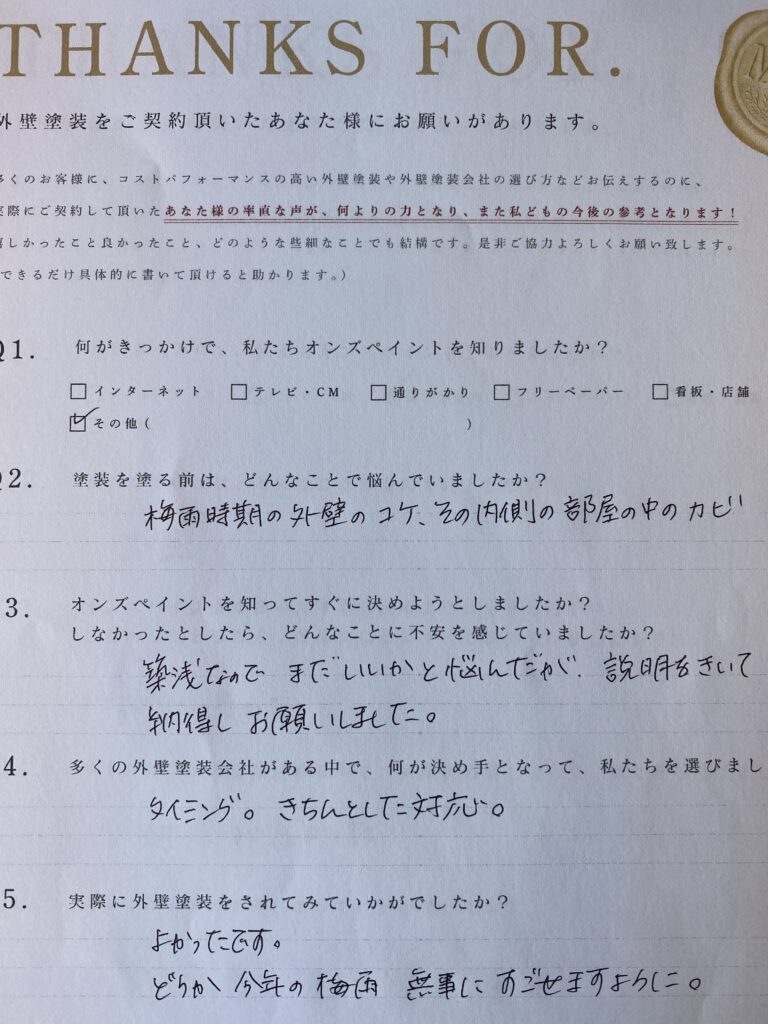 THANKS FOR.
外壁塗装をご契約頂いたあなた様にお願いがあります。
多くのお客様に、コストパフォーマンスの高い外壁塗装や外壁塗装会社の選び方などお伝えするのに、
実際にご契約して頂いたあなた様の率直な声が、何よりの力となり、また私どもの今後の参考となります!
嬉しかったこと良かったこと、どのような些細なことでも結構です。是非ご協力よろしくお願い致します。
できるだけ具体的に書いて頂けると助かります。)
Q1. 何がきっかけで、私たちオンズペイントを知りましたか?
□インターネット □テレビ・CM □通りがかり □フリーペーパー □看板・店舗
☑その他( )
Q2. 塗装を塗る前は、どんなことで悩んでいましたか?
梅雨時期の外壁のコケ、その内側の部屋の中のカビ
3. オンズペイントを知ってすぐに決めようとしましたか?
しなかったとしたら、どんなことに不安を感じていましたか?
築浅なので まだいいかと悩んだが、説明をきいて
納得し お願いしました。
4. 多くの外壁塗装会社がある中で、何が決め手となって、私たちを選びまし
タイミング。きちんとした対応。
5. 実際に外壁塗装をされてみていかがでしたか?
よかったです。
どうか 今年の梅雨 無事に すごせますように。